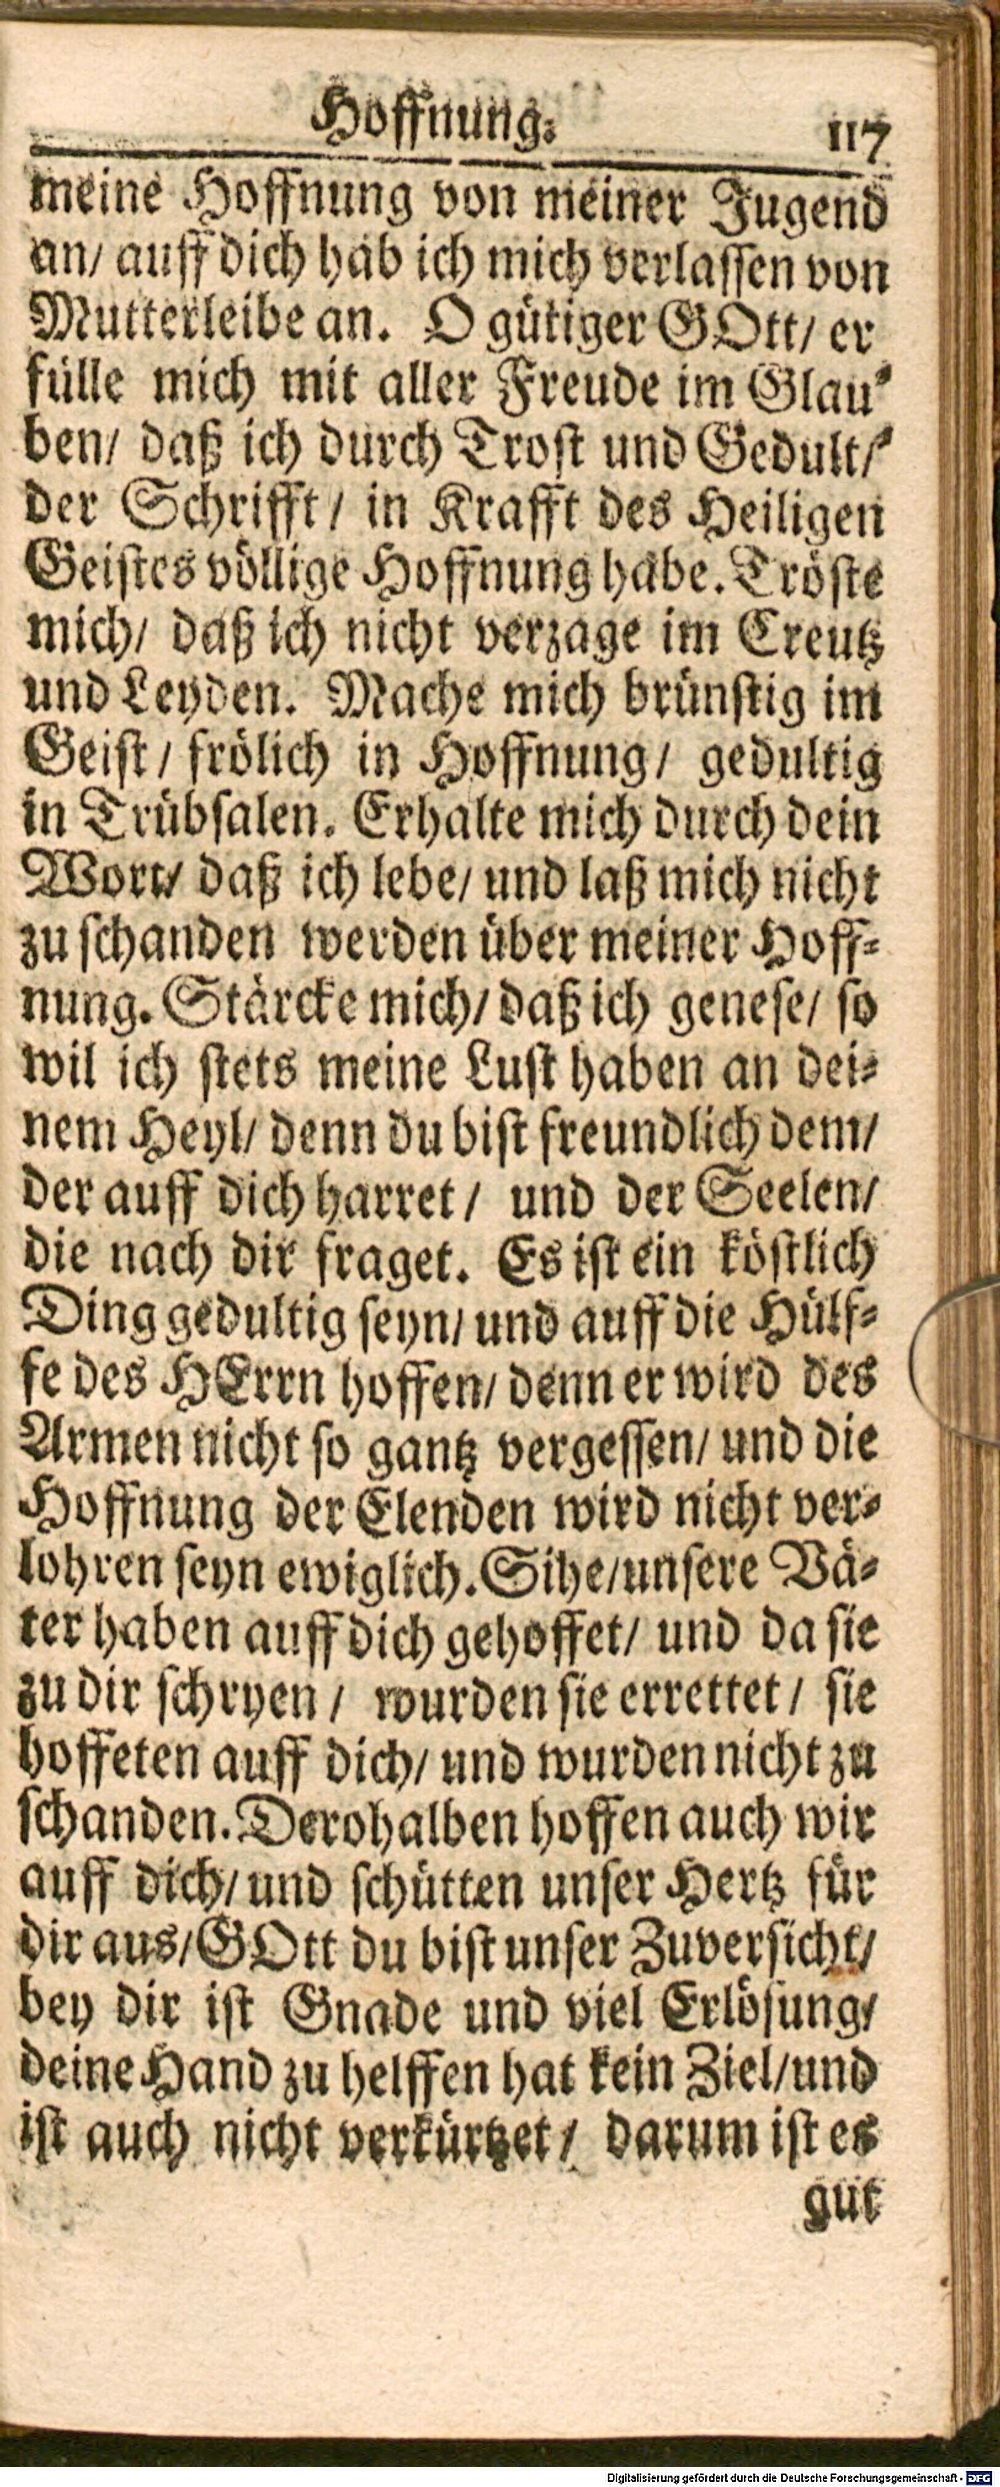 Hoffnung. 117
meine Hoffnung von meiner Jugend
an/ auff dich hab ich mich verlassen von
Mutterleibe an. O gütiger GOtt/ er
fülle mich mit aller Freude im Glau-
ben/ daß ich durch Trost und Gedult/
der Schrifft/ in Krafft des Heiligen
Geistes völlige Hoffnung habe. Tröste
mich/ daß ich nicht verzage im Creutz
und Leyden. Mache mich brünstig im
Geist/ frölich in Hoffnung/ gedultig
in Trübsalen. Erhalte mich durch dein
Wort/ daß ich lebe/ und laß mich nicht
zu schanden werden über meiner Hoff-
nung. Stärcke mich/ daß ich genese/ so
wil ich stets meine Lust haben an dei-
nem Heyl/ denn du bist freundlich dem/
der auff dich harret/ und der Seelen/
die nach dir fraget. Es ist ein köstlich
Ding gedultig seyn/ und auff die Hülf-
fe des HErrn hoffen/ denn er wird des
Armen nicht so gantz vergessen/ und die
Hoffnung der Elenden wird nicht ver-
lohren seyn ewiglich. Sihe/ unsere Vä-
ter haben auff dich gehoffet/ und da sie
zu dir schryen/ wurden sie errettet/ sie
hoffeten auff dich/ und wurden nicht zu
schanden. Derohalben hoffen auch wir
auff dich/ und schütten unser Hertz für
dir aus/ GOtt du bist unser Zuversicht/
bey dir ist Gnade und viel Erlösung/
deine Hand zu helffen hat kein Ziel/ und
ist auch nicht verkürtzet/ darum ist es
gut
Digitalisierung gefördert durch die Deutsche Forschungsgemeinschaft - DFG